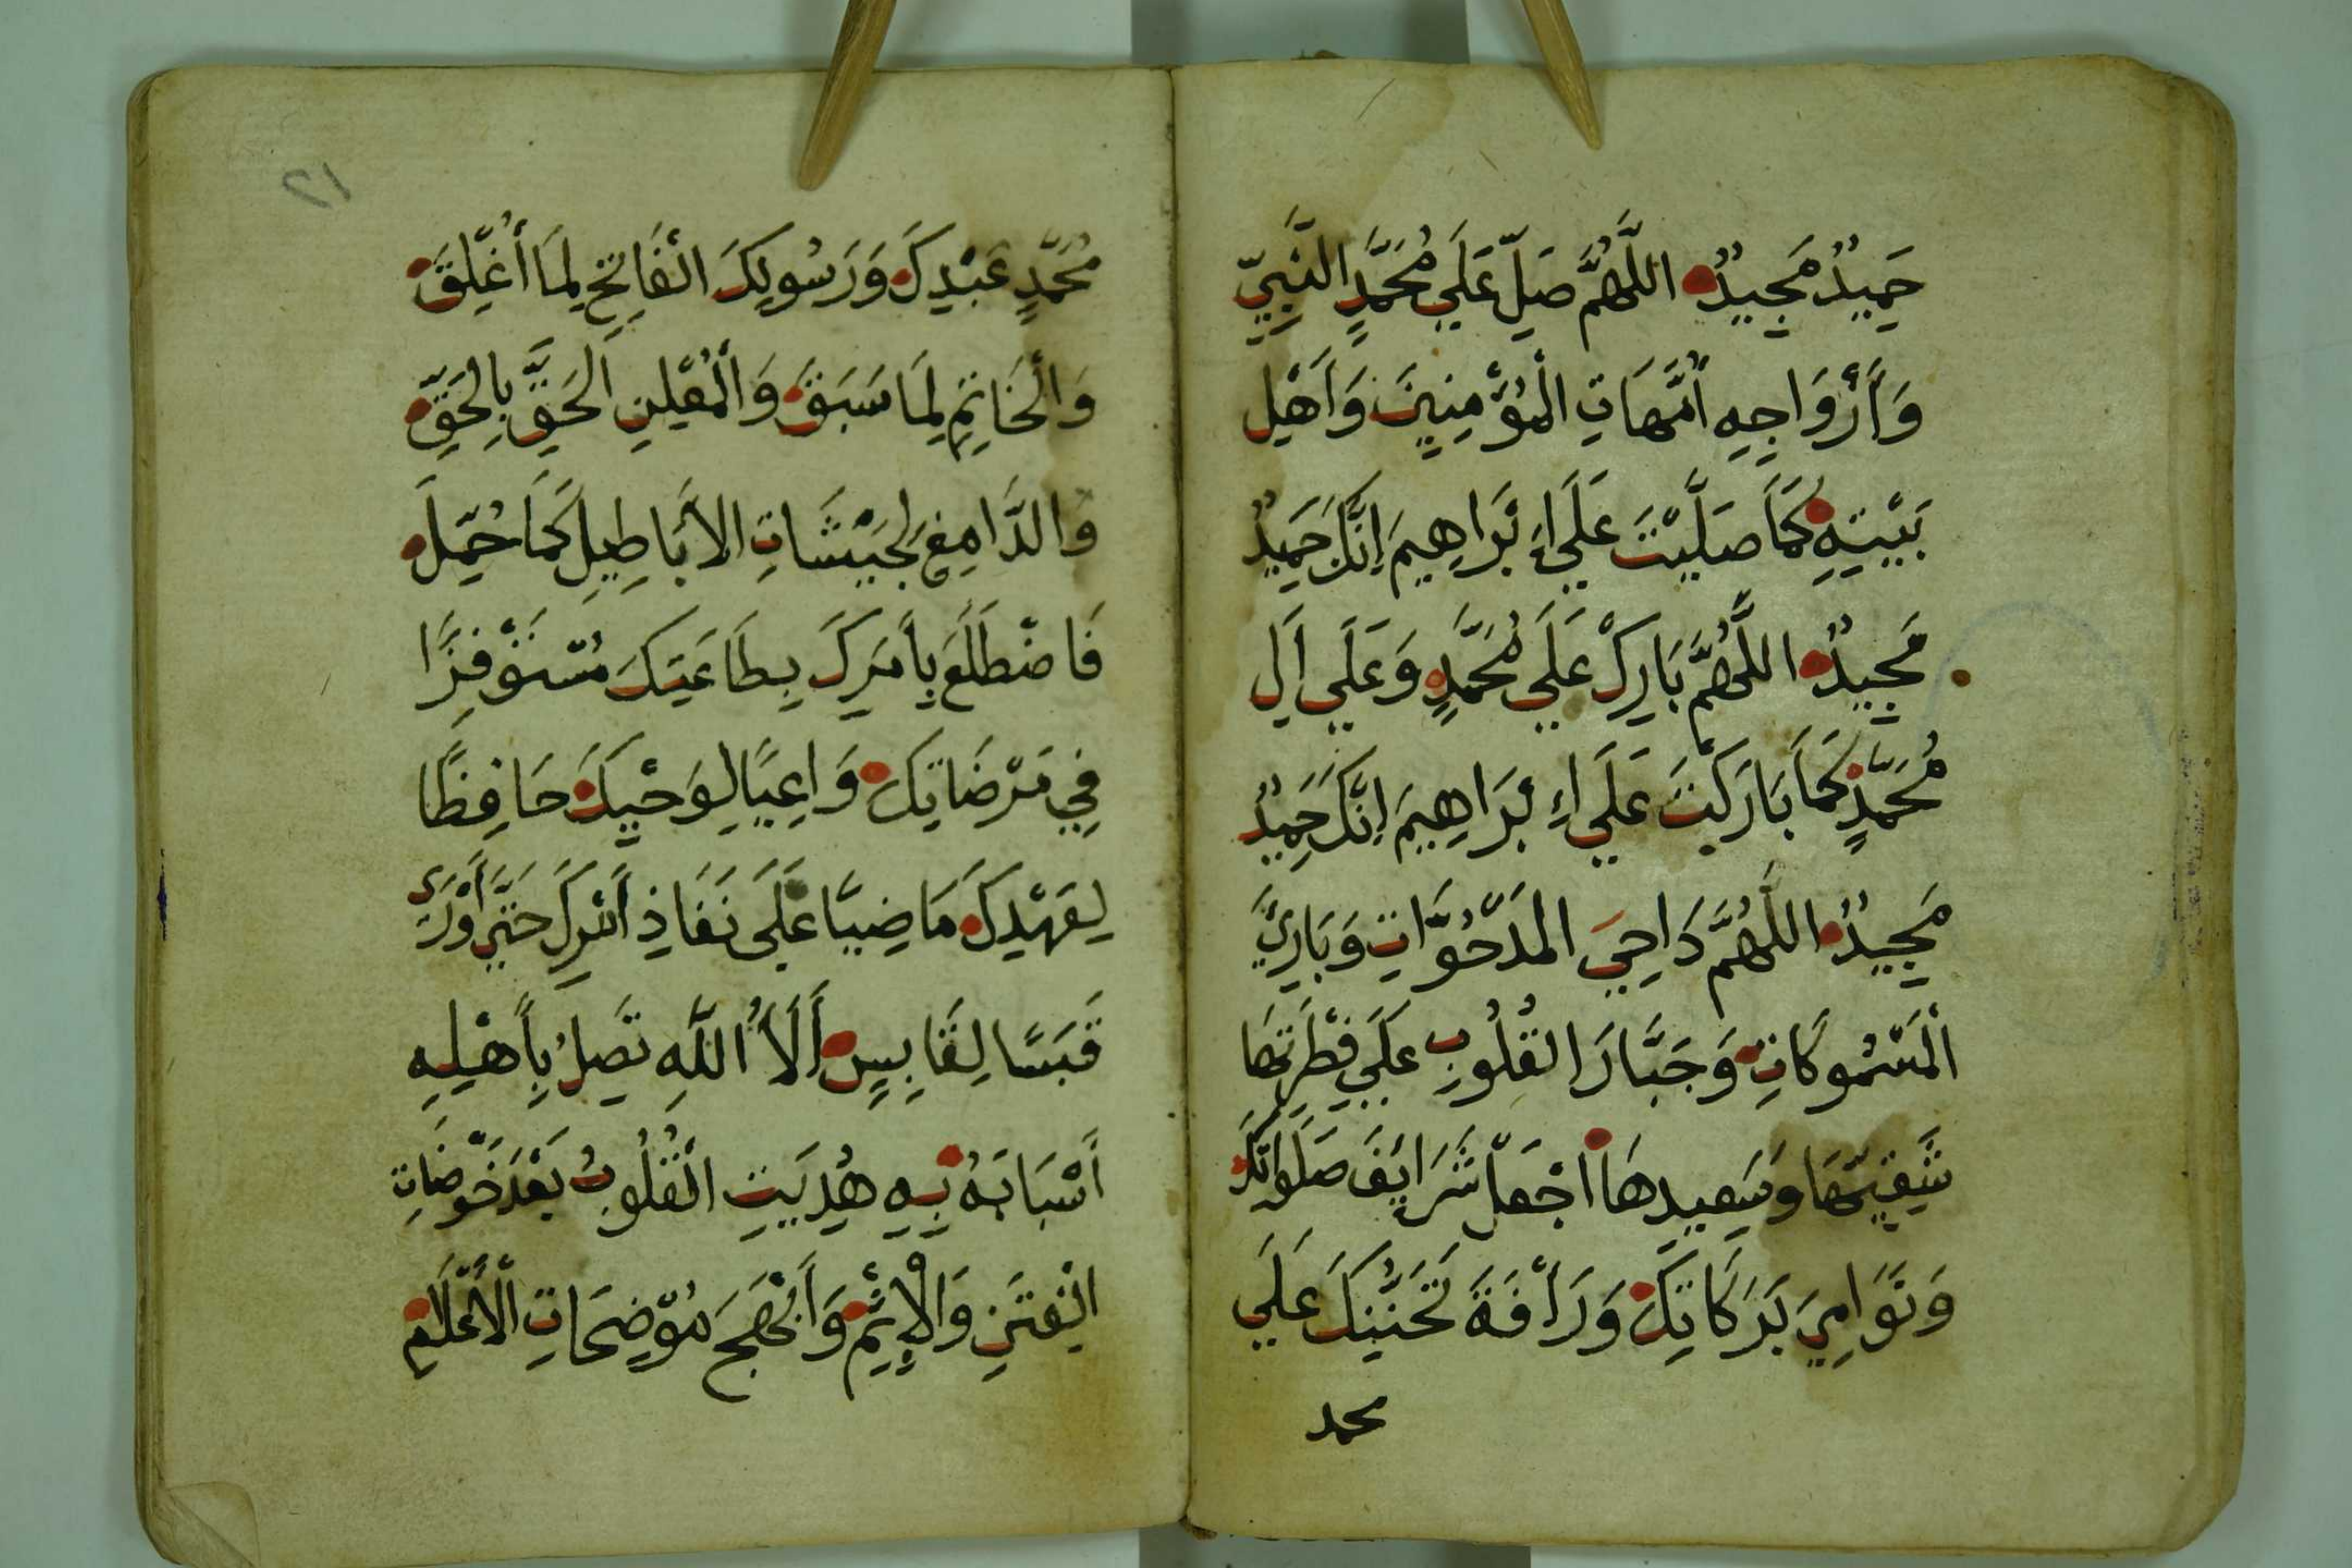 حَمِيدٌ مَجِيدٌ اللَّهُمَّ صَلِّ عَلَي مُحَمَّدٍ النَّبِيِّ
وَأَزْوَاجِهِ أُمَّهَاتِ الْمُؤْمِنِينَ وَأَهْلِ
بَيْتِهِ كَمَا صَلَّيْتَ عَلَي إِبْرَاهِيمَ إِنَّكَ حَمِيدٌ
مَجِيدٌ اللَّهُمَّ بَارِكْ عَلَي مُحَمَّدٍ وَعَلَي اَلِ
مُحَمَّدٍ كَمَا بَارَكْتَ عَلَي إِبْرَاهِيمَ إِنَّكَ حَمِيدٌ
مَجِيدٌ اللَّهُمَّ دَاحِيَ الْمَدْحُوَّاتِ وَبَارِئَ
الْمَسْمُوكَاتِ وَجَبَّارَ الْقُلُوبِ عَلَي فِطْرَتِهَا
شَقِيِّهَا وَسَعِيدِهَا اجْعَلْ شَرَايِفَ صَلَوَاتِكَ
وَنَوَامِيَ بَرَكَاتِكَ وَرَأْفَةَ تَحَنُّنِكَ عَلَي
محمد
٢١
مُحَمَّدٍ عَبْدِكَ وَرَسُولِكَ الْفَاتِحِ لِمَا أُغْلِقَ
وَالْخَاتِمِ لِمَا سَبَقَ وَالْمُعْلِنِ الْحَقَّ بِالْحَقِّ
وَالدَّامِغِ لِجَيْشَاتِ الْأَبَاطِيلِ كَمَا حُمِّلَ
فَاضْطَلَعَ بِأَمْرِكَ بِطَاعَتِكَ مُسْتَوْفِزًا
فِي مَرْضَاتِكَ وَاعِيًا لِوَحْيِكَ حَافِظًا
لِعَهْدِكَ مَاضِيًا عَلَي نَفَاذِ أَمْرِكَ حَتَّي أَوْرَى
قَبَسًا لِقَابِسٍ أَلَاءُ اللَّهِ تَصِلُ بِأَهْلِهِ
أَسْبَابَهُ بِهِ هُدِيَتِ الْقُلُوبُ بَعْدَ خَوْضَاتِ
الْفِتَنِ وَالْإِثْمِ وَأَبْهَجَ مُوضِحَاتِ الْأَعْلَامِ